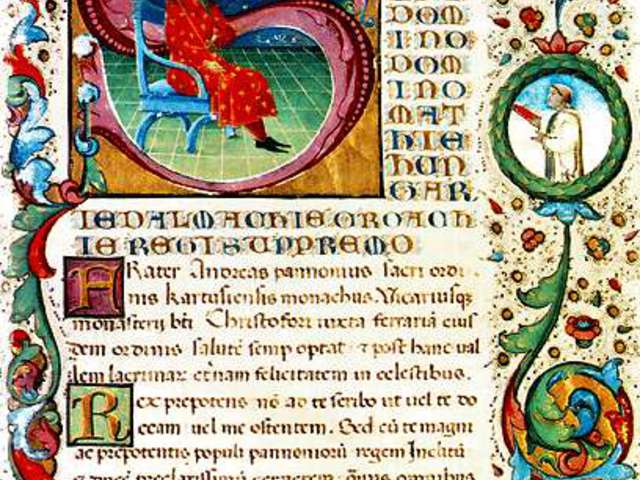 DOM
INO
DOM
INO
MAT
HIE
HUN
GAR
IE DALMACHIE CROACH
IE REGI SUPPREMO
FRater Andreas pannonius sacri ordi
nis kartusiensis monachus. Vicariusq
monasterij bti Christofori iuxta ferrariā eius
dem ordinis salutē semp optat et post hanc val
lem lacrimar eternam felicitatem in celestibus.
Rex prepotens nō ad te scribo ut uel te do
ceam uel me ostentem. Sed cū te magni
ac prepotentis populi pannoniorū regem Inclitū